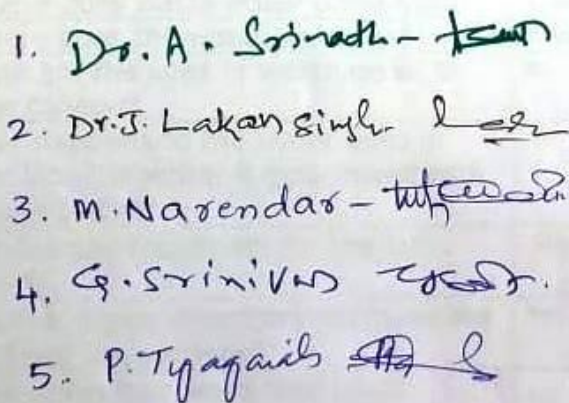 1. Dr. A. Srinath -
2. Dr. J. Lakan Singh -
3. M. Narendar -
4. G. Srinivas
5. P. Tyagaiah